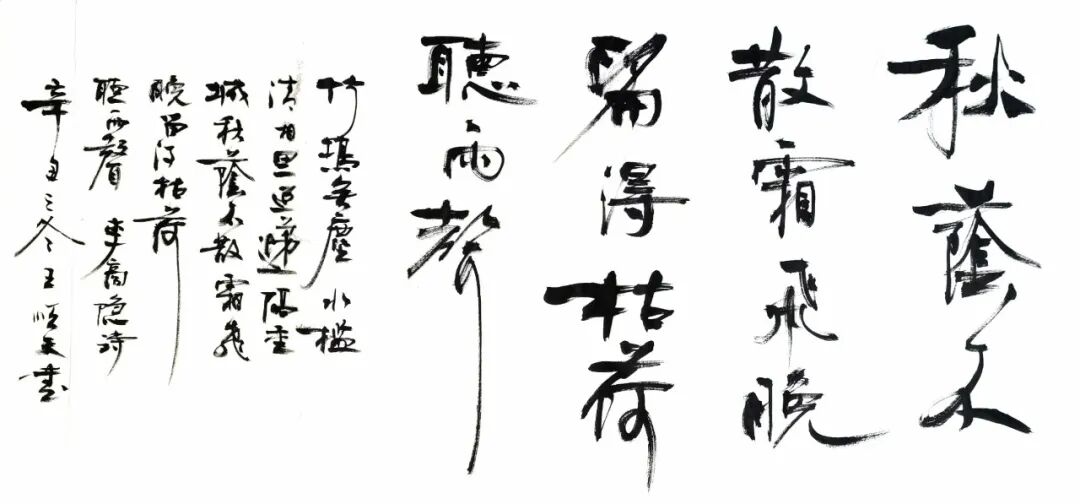 秋蔭不
散霜飛晚
留得枯荷
聽雨聲
竹塢無塵水檻
清相思迢遞隔重
城秋蔭不散霜飛
晚留得枯荷
聽雨聲 李商隐诗
辛丑之冬王天書